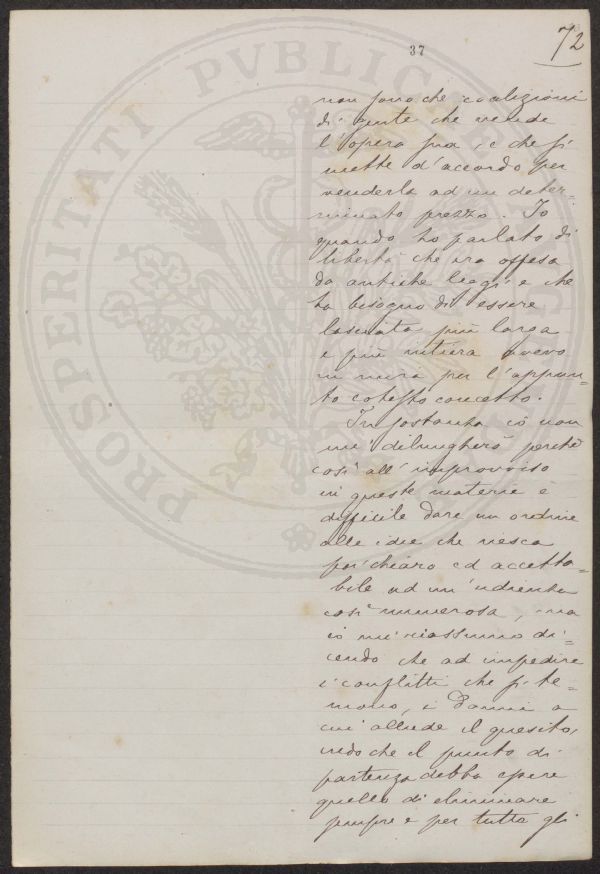 37
72
PROSPERITATI PVBLICAE
non sono che coalizioni
di gente che vende
l'opera sua, e che si
mette d'accordo per
venderla ad un deter=
minato prezzo. Io
quando ho parlato di
libertà che era offesa
da antiche leggi e che
ha bisogno di essere
lasciata più larga
e più intiera avevo
in mira per l'appun=
to cotesto concetto.
In sostanza io non
mi dilungherò perchè
così all'improvviso
in queste materie è
difficile dare un ordine
alle idee che riesca
poi chiaro ed accetta=
bile ad un'udienza
così numerosa, ma
io mi riassumo di=
cendo che ad impedire
i conflitti che si te=
mono, i danni a
cui allude il quesito,
credo che il punto di
partenza debba essere
quello di eliminare
sempre e per tutto gli